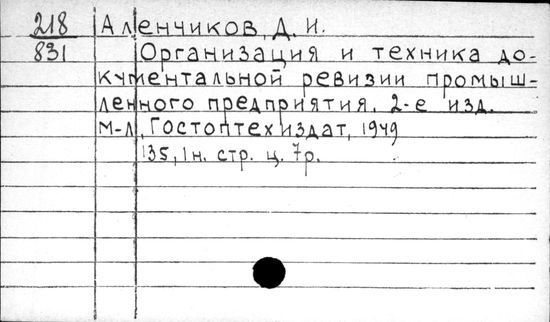 218 Аленчиков, Д. И.
831 Организация и техника до-
кументальной ревизии промыш-
ленного предприятия. 2-е изд.
М-Л, Гостоптехиздат, 1949
135, 1н. стр. ц. 7р.